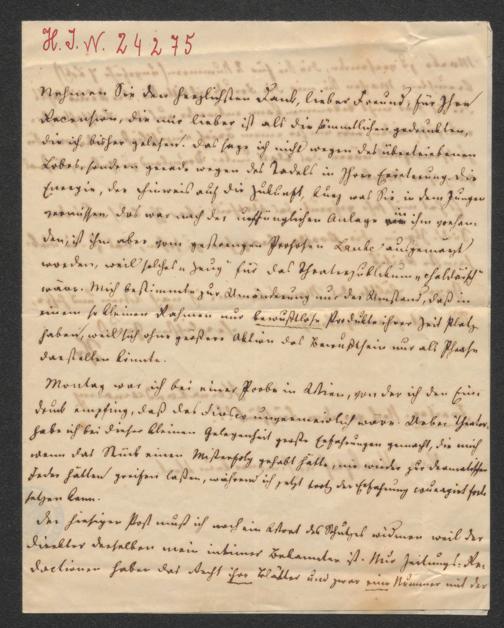 H. I. N. 24275
Nehmen Sie den herzlichsten Dank, lieber Freund, für Ihre
Recension, die mir lieber ist als die sämmtlichen gedruckten,
die ich bisher gelesen. Das sage ich nicht wegen des übertriebenen
Lobes, sondern gerade wegen des Tadels in Ihrer Erörterung. Die
Energie, der Hinweis auf die Zukunft, kurz was Sie in dem Jungen
vermissen, das war nach der ursprünglichen Anlage in ihm vorhan
den, ist ihm aber vom gestrengen Professor ausgemerzt
worden, weil solches „Zeug" für das Theaterpublikum
wäre. Mich bestimmte zur Umänderung nur der Umstand, daß in
einem so kleinen Rahmen nur bewußtlose Produkte ihrer Zeit Platz
haben, weil sich ohne größere Aktion das Bewußtsein nur als Phrase
darstellen könnte.
Montag war ich bei einer Probe in Wien, von der ich den Ein
druck empfing, daß das unvermeidlich war. Ueber Theater
habe ich bei dieser kleinen Gelegenheit große Erfahrungen gemacht, die mich
wenn das Stück einen Mißerfolg gehabt hätte, nie wieder zur dramatischen
Feder hätten greifen lassen, während ich jetzt trotz der Erfahrung couragirt fort
setzen kann.
Der hiesigen Post muß ich noch ein Wort des Schutzes widmen weil der
Direktor derselben mein intimer Bekannter ist. Nur Zeitungs-Re
dactionen haben das Recht ihre Blätter und zwar eine Nummer mit der